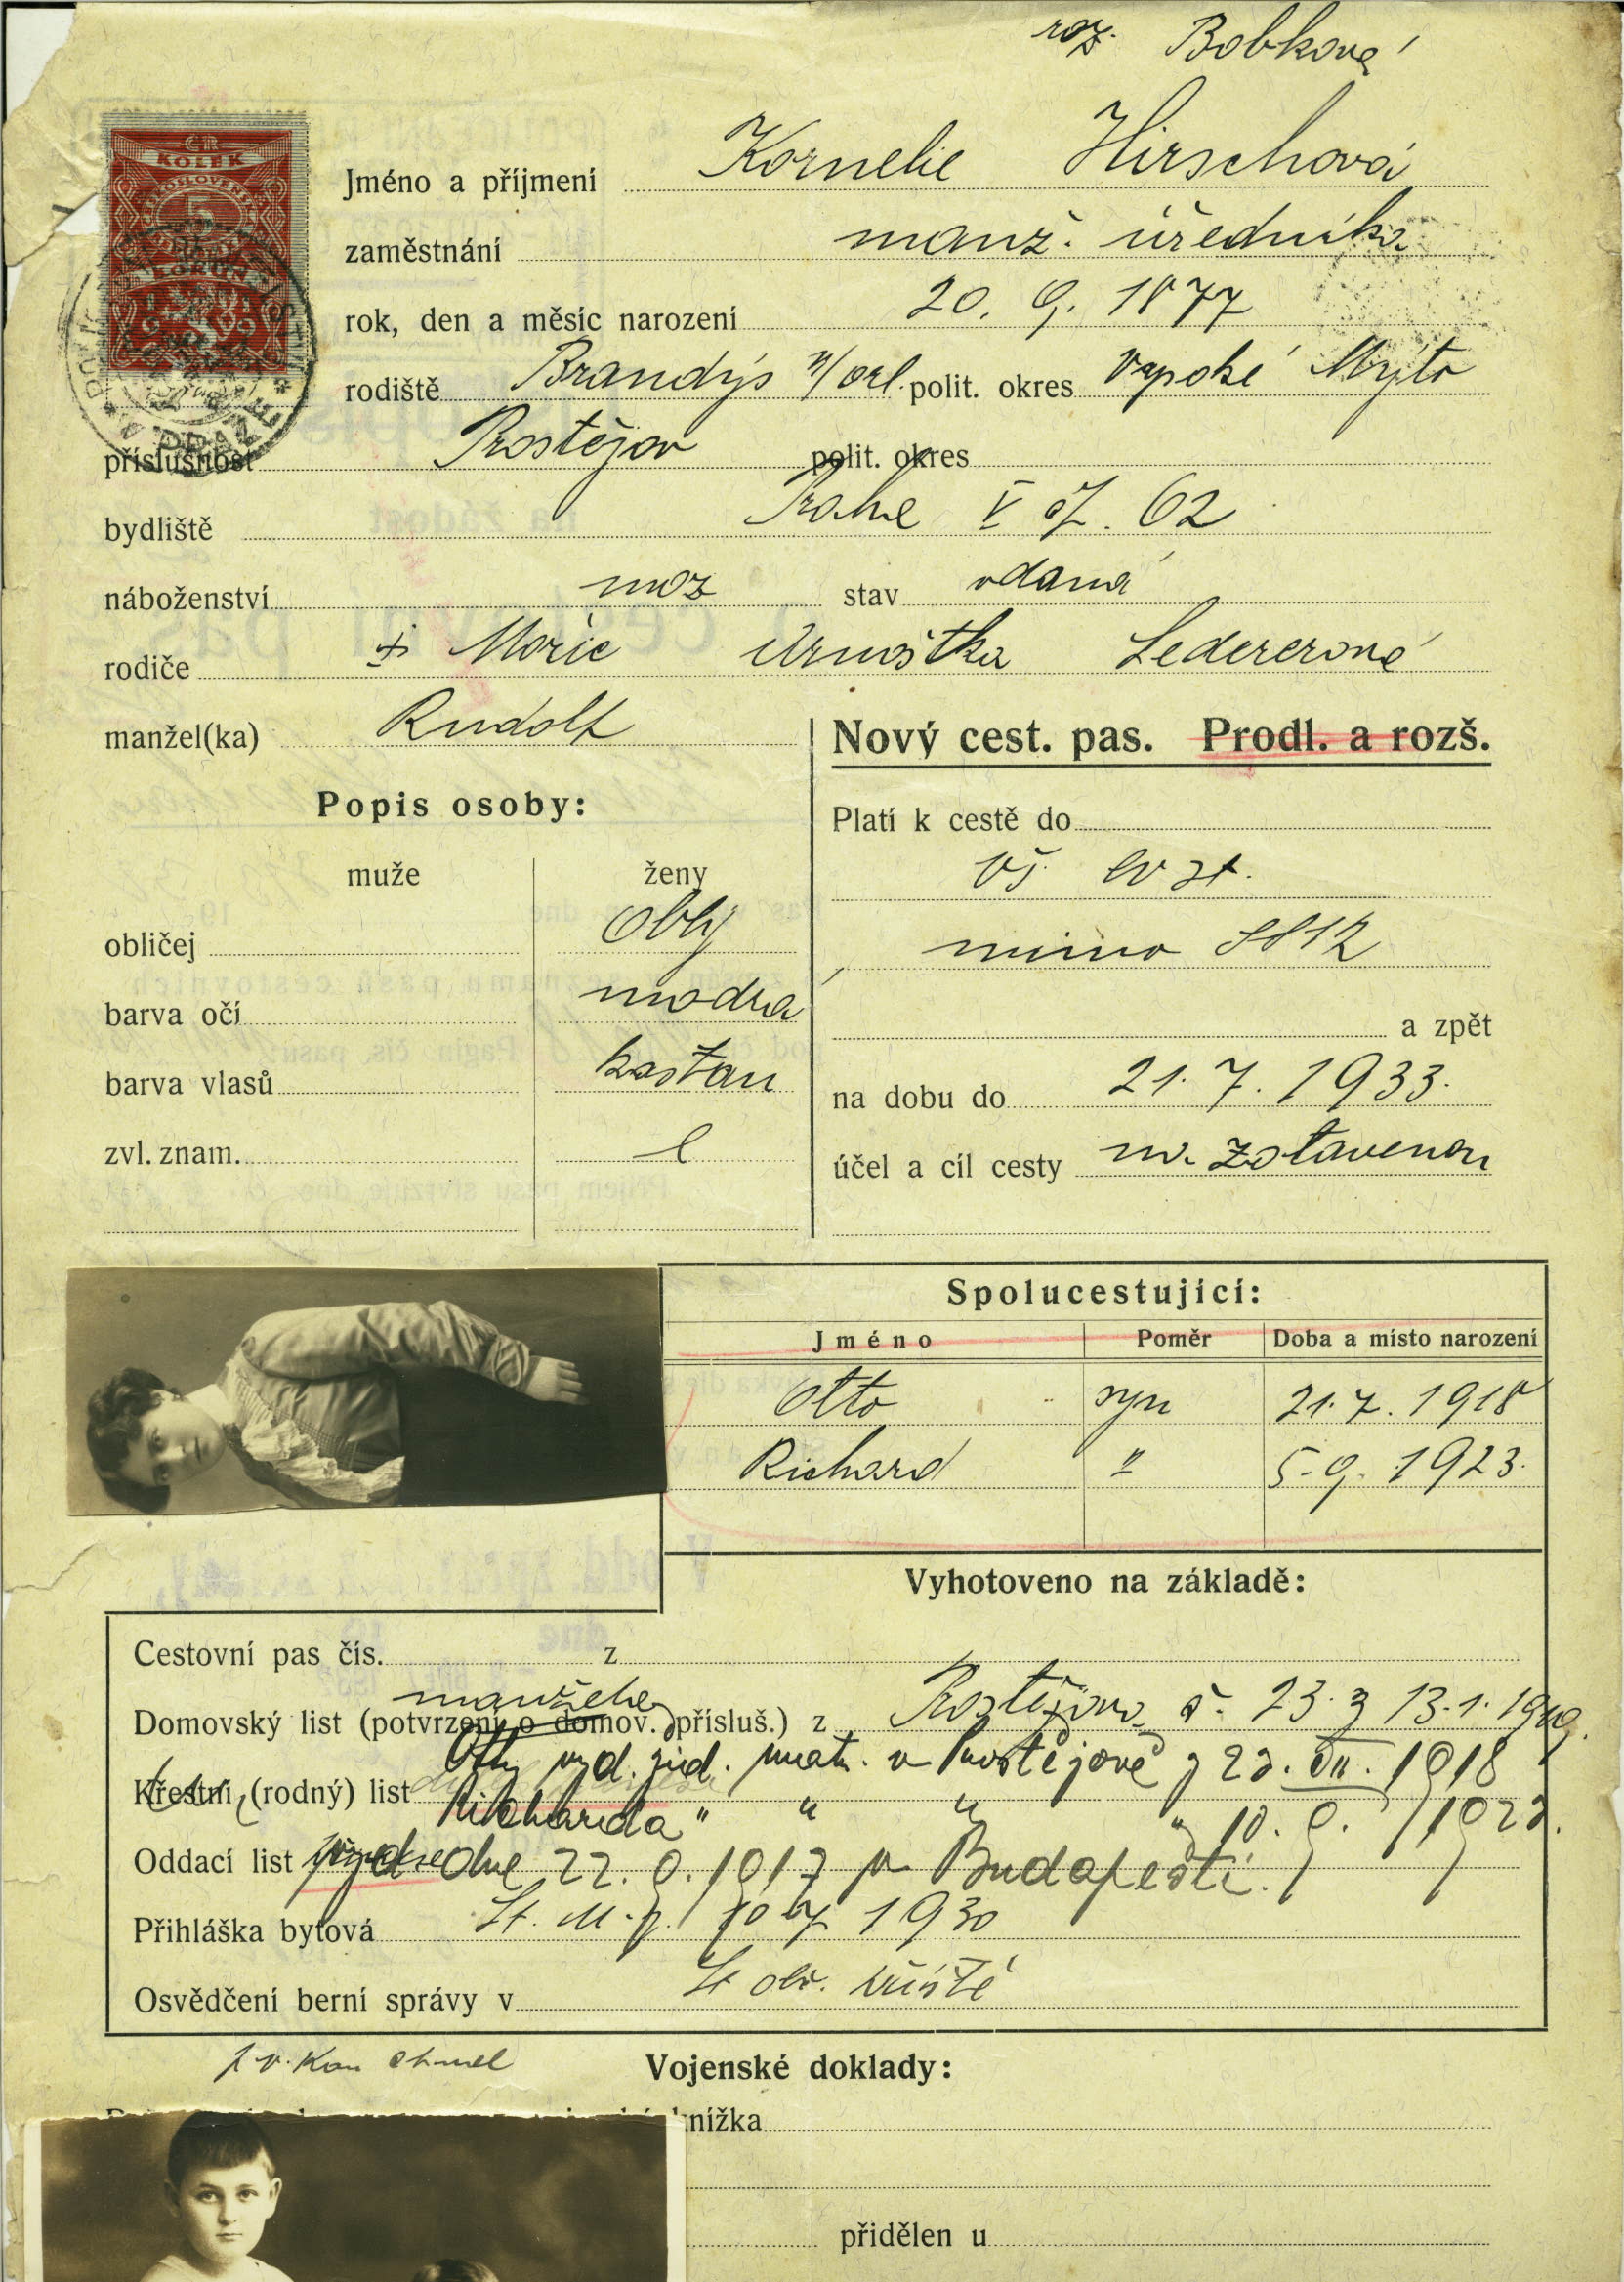 roz. Bobková
KOLEK
5
KORUN
Jméno a příjmení Kornelie Hirschová
zaměstnání manž. úředníka
rok, den a měsíc narození 20. 9. 1877
rodiště Brandýs n/Orl. polit. okres Vysoké Mýto
příslušnost Prostějov polit. okres
bydliště Praha V čj. 62
náboženství moz stav vdaná
rodiče Moric Arnoštka Ledererová
manžel(ka) Rudolf
Nový cest. pas. Prodl. a rozš.
Popis osoby:
muže ženy
obličej oblý
barva očí modrá
barva vlasů kaštan
zvl. znam.
Platí k cestě do
vš. ev st.
mimo SSSR
a zpět
na dobu do 21. 7. 1933.
účel a cíl cesty zotavenou
Spolucestující:
Jméno Poměr Doba a místo narození
Otto syn 21. 7. 1918
Richard " 5. 9. 1923.
Vyhotoveno na základě:
Cestovní pas čís. z
manžela
Domovský list (potvrzení o domov. přísluš.) z Prostějova č. 23. z 13. 1. 1919.
Křestní (rodný) list Otty vyd. žid. matr. v Prostějově z 23. VII. 1918
Richarda " " " " 10. 9. 1923.
Oddací list dne 22. 9. 1917 v Budapešti.
Přihláška bytová 1930
Osvědčení berní správy v
Vojenské doklady:
knížka
přidělen u